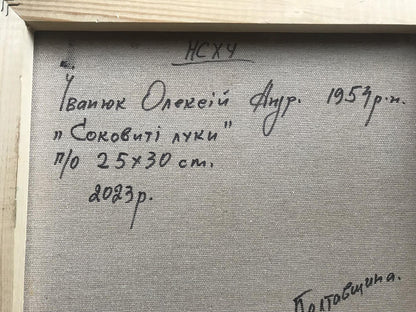 НСХУ
Іванюк Олексій Андр. 1954р.н.
"Соковиті луки"
п/о 25х30 см.
2023р.
Полтавщина.